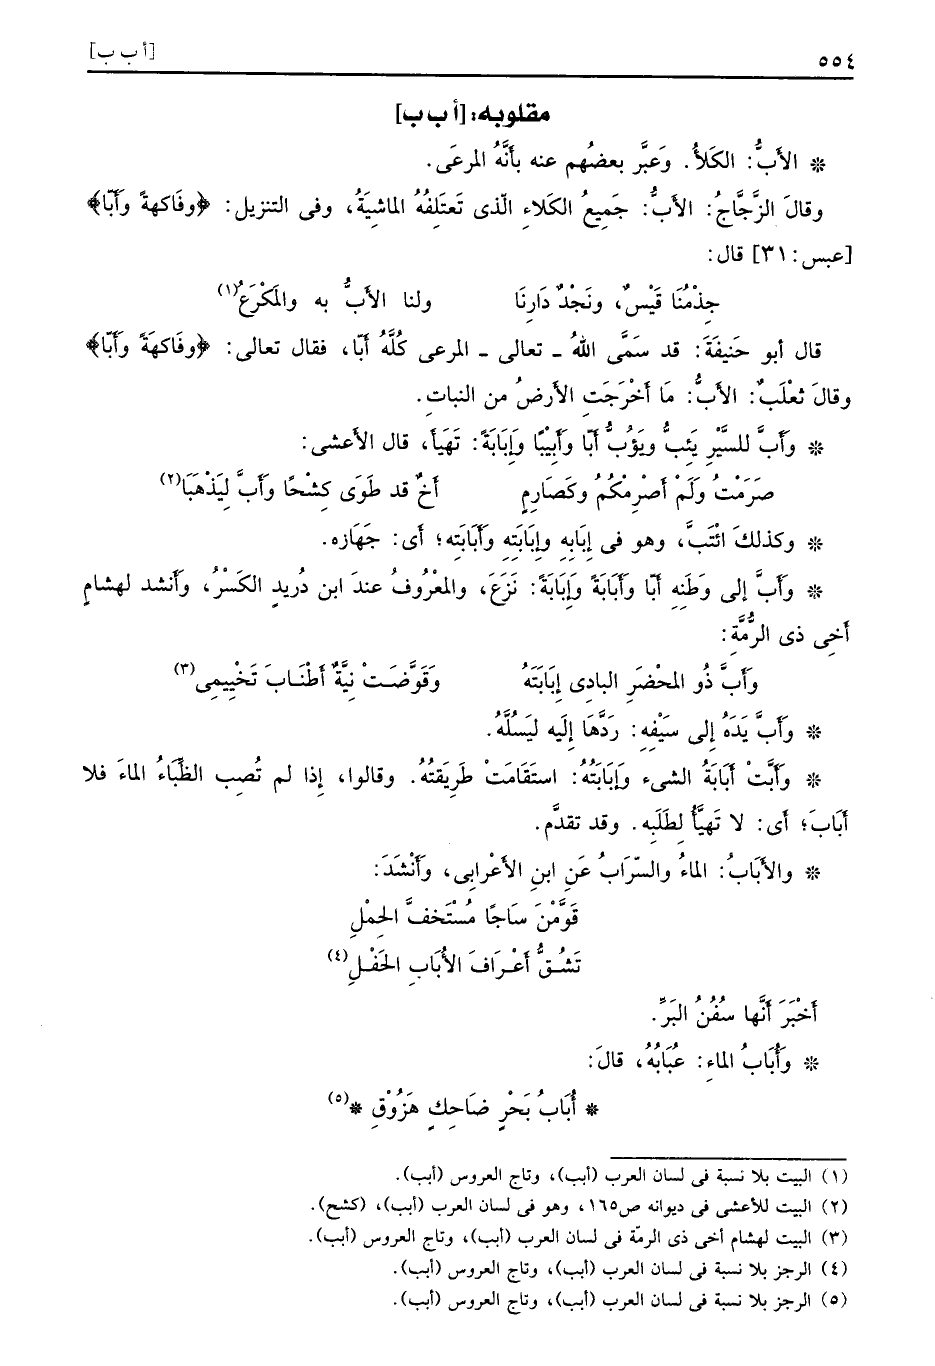 ٥٥٤ [أ ب ب]
مقلوبه: [أ ب ب]
* الأَبُّ: الكَلأُ. وَعبَّر بعضُهم عنه بأنَّهُ المرعَى.
وقالَ الزَّجَّاجُ: الأَبُّ: جَمِيعُ الكَلاءِ الّذى تَعتَلِفُهُ الماشِيَةُ، وفى التنزيل: ﴿وفَاكهةً وأَبّا﴾
[عبس: ٣١] قال:
جِذْمُنَا قَيْسٌ، ونَجْدٌ دَارِنَا ولنا الأَبُّ به والمَكْرَعُ(١)
قال أبو حَنيفَةَ: قد سَمَّى اللهُ ـ تعالى ـ المرعى كُلَّهُ أبّا، فقال تعالى: ﴿وفَاكهةً وأَبّا﴾
وقالَ ثعْلَبٌ: الأَبُّ: مَا أخْرَجَتِ الأرضُ من النباتِ.
* وأَبَّ للسَّيْرِ يَئِبُّ ويَؤُبُّ أبّا وأَبِيْبًا وإِبَابَةً: تَهَيَأَ، قال الأعشى:
صَرَمْتُ ولَمْ أصْرِمْكُمُ وكَصَارِمٍ أَخٌ قد طَوَى كشْحًا وأبَّ ليَذْهَبَا(٢)
* وكذلكَ ائْتَبَّ، وهو فى إِبَابِه وإِبَابَتِه وأَبَابَتِه؛ أى: جَهَازه.
* وأَبَّ إلى وَطَنِه أبّا وأَبَابَةً وإِبَابَةً: نَزَعَ، والمعْرُوفُ عندَ ابن دُريدٍ الكَسْرُ، وأنشد لهشامٍ
أخِى ذى الرُّمَّةِ:
وأَبَّ ذُو المحْضَرِ البادِى إِبَابَتَهُ وقَوَّضَتْ نِيَّةٌ أطْنَابَ تَخْيِيمِى(٣)
* وأَبَّ يَدَهُ إلى سَيْفِهِ: رَدَّهَا إلَيه ليَسُلَّهُ.
* وأَبَّتْ أَبَابَةُ الشىء وإِبَابَتُهُ: استَقَامَتْ طَرِيقَتُهُ. وقالوا، إذا لم تُصِبِ الظِّبَاءُ الماءَ فلا
أبَابَ؛ أى: لا تَهيَّأُ لطَلَبِه. وقد تقدَّم.
* والأبَابُ: الماءُ والسّرَابُ عَنِ ابنِ الأعْرابى، وأَنْشَدَ:
قَوَّمْنَ سَاجًا مُسْتَخفَّ الحِمْلِ
تَشُقُّ أعْرَافَ الأبَابِ الحَفْلِ(٤)
أخْبَرَ أنَّها سفُنُ البَرِّ.
* وأُبَابُ الماءِ: عُبَابُهُ، قالَ:
* أُبَابُ بَحْرٍ ضَاحِكٍ هَزُوْقِ *(٥)
(١) البيت بلا نسبة فى لسان العرب (أبب)، وتاج العروس (أبب).
(٢) البيت للأعشى فى ديوانه ص١٦٥، وهو فى لسان العرب (أبب)، (كشح).
(٣) البيت لهشام أخى ذى الرمّة فى لسان العرب (أبب)، وتاج العروس (أبب).
(٤) الرجز بلا نسبة فى لسان العرب (أبب)، وتاج العروس (أبب).
(٥) الرجز بلا نسبة فى لسان العرب (أبب)، وتاج العروس (أبب).